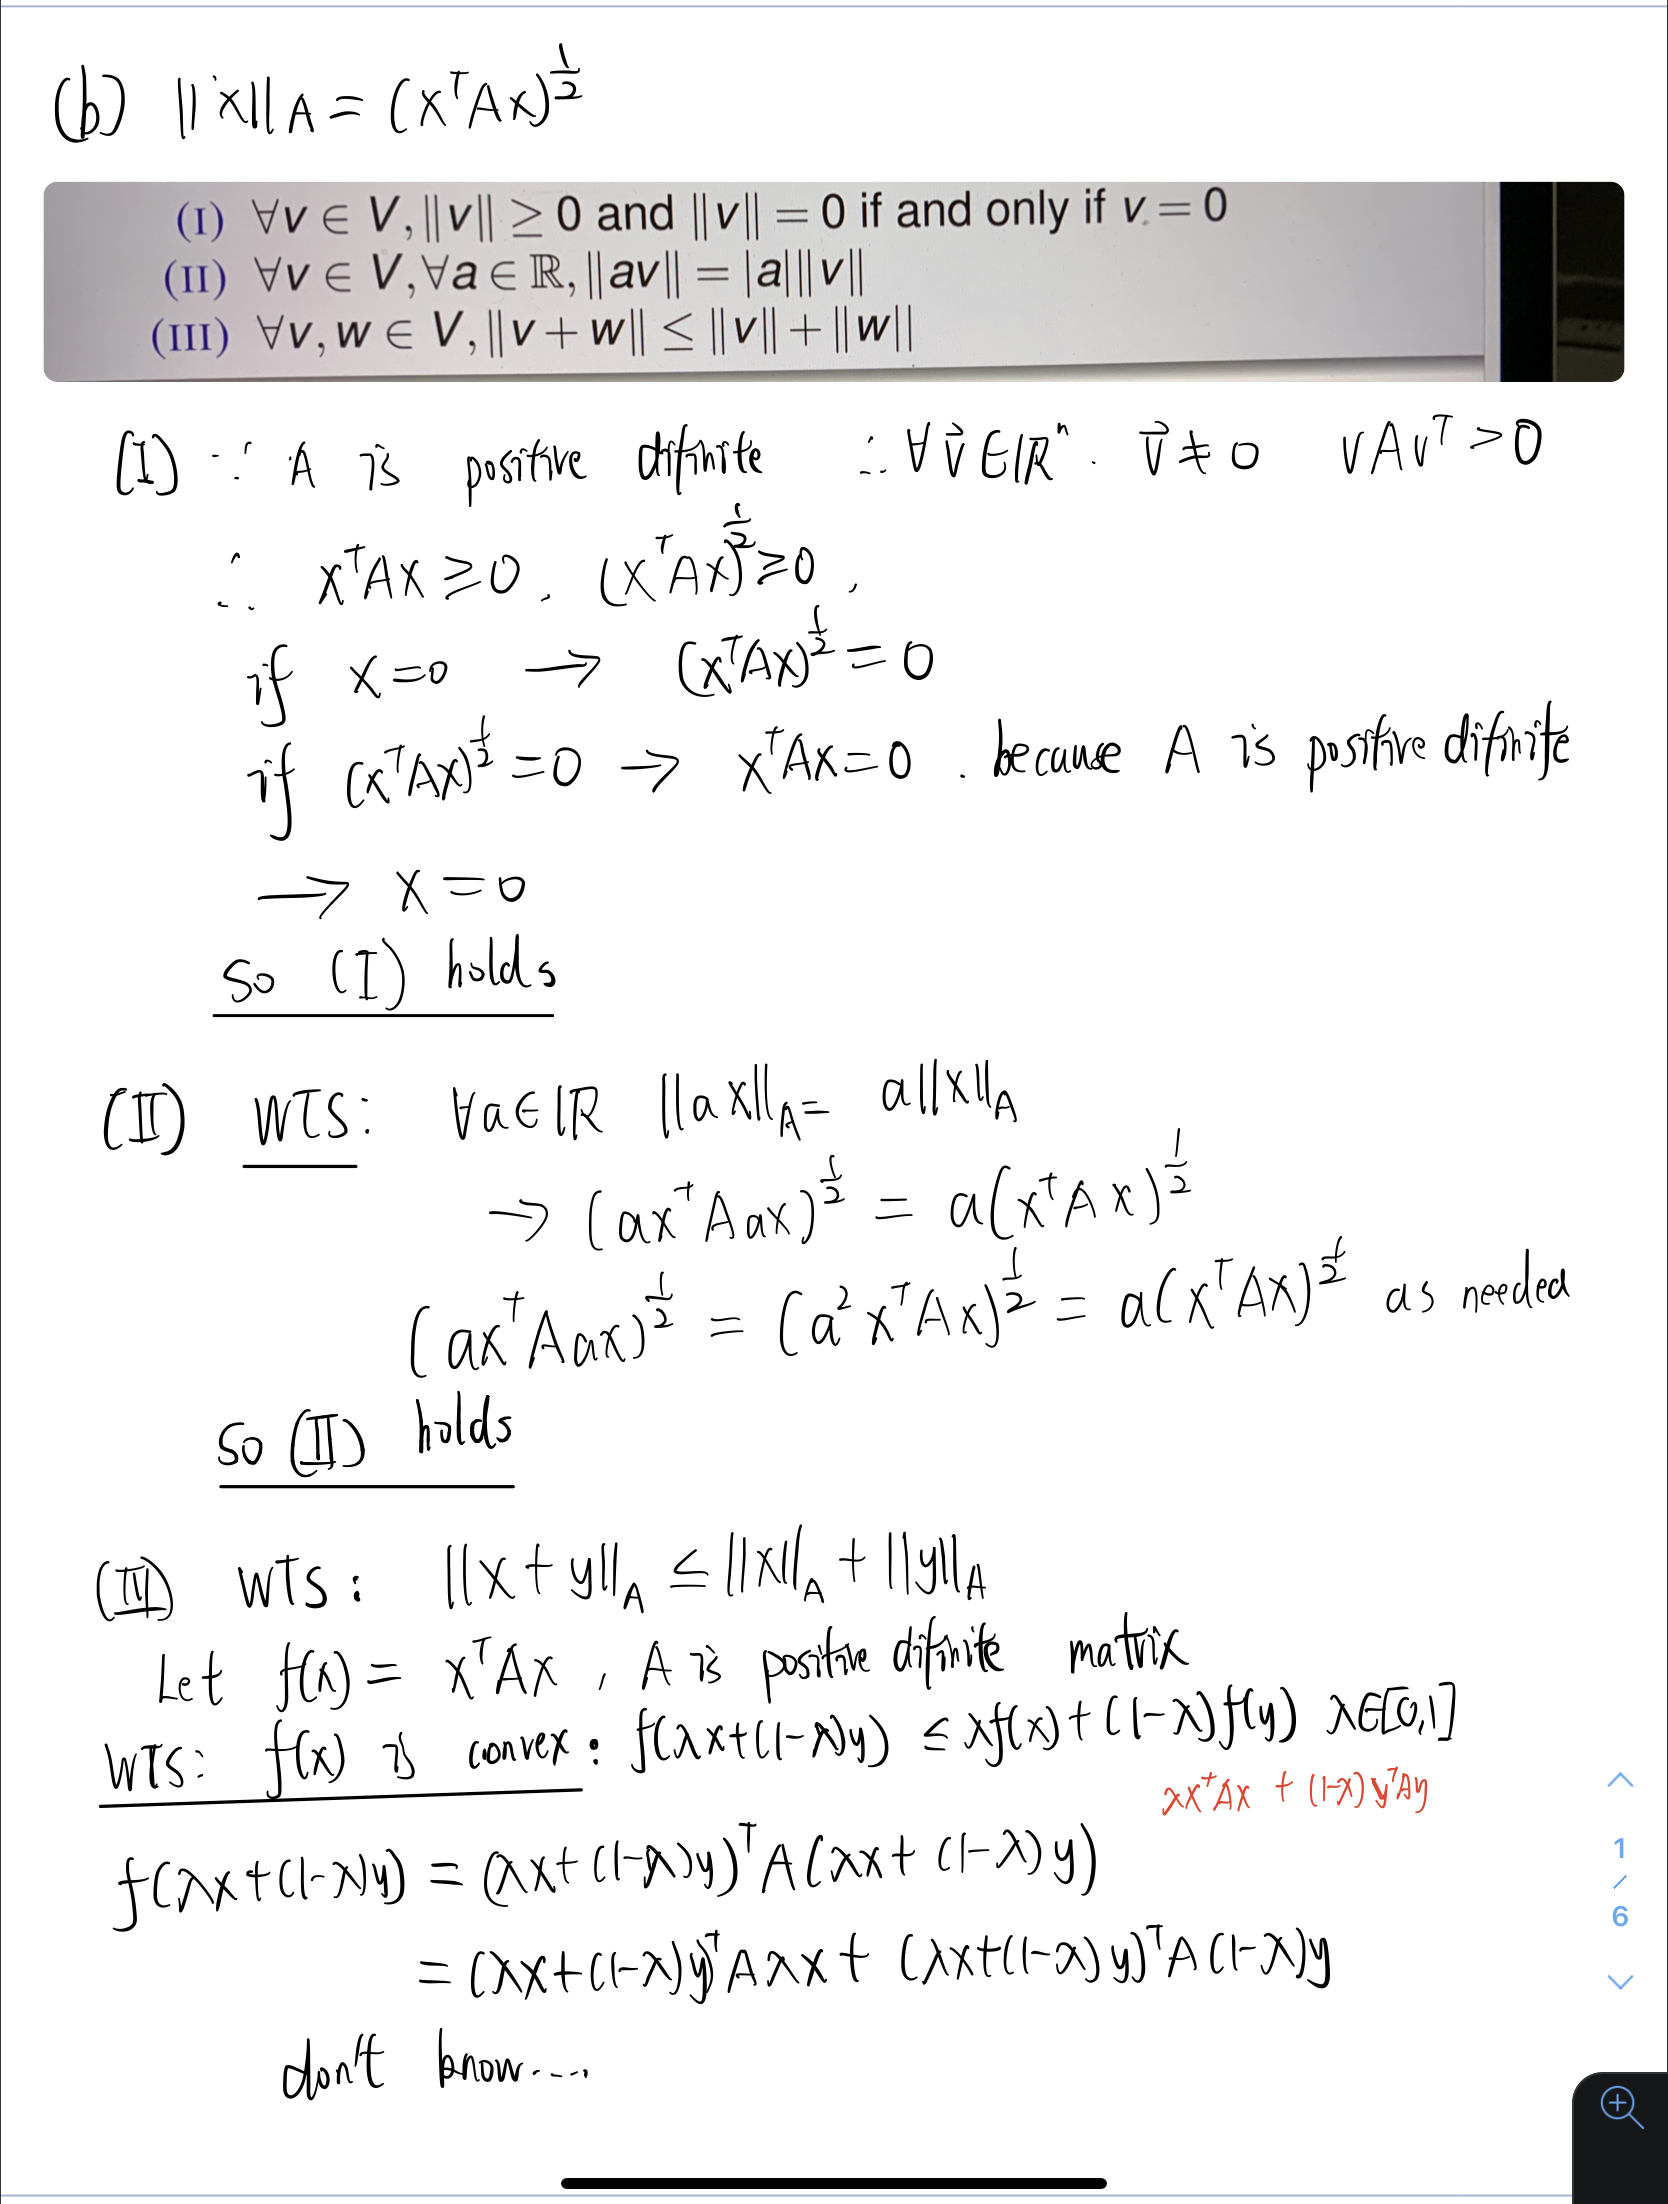 (b) ||x||A = (xᵀAx)^½
(I) ∀v ∈ V, ||v|| ≥ 0 and ||v|| = 0 if and only if v = 0
(II) ∀v ∈ V, ∀a ∈ ℝ, ||av|| = |a|||v||
(III) ∀v, w ∈ V, ||v + w|| ≤ ||v|| + ||w||
(I) ∵ A is positive difinite ∴ ∀v⃗ ∈ ℝⁿ. v⃗ ≠ 0 vAvᵀ > 0
∴ xᵀAx ≥ 0, (xᵀAx)^½ ≥ 0,
if x = 0 → (xᵀAx)^½ = 0
if (xᵀAx)^½ = 0 → xᵀAx = 0. because A is positive difinite
→ x = 0
so (I) holds
(II) WTS: ∀a∈ℝ ||ax||A = a||x||A
→ (axᵀAax)^½ = a(xᵀAx)^½
(axᵀAax)^½ = (a²xᵀAx)^½ = a(xᵀAx)^½ as needed
so (II) holds
(III) WTS: ||x + y||A ≤ ||x||A + ||y||A
Let f(x) = xᵀAx, A is positive difinite matrix
WTS: f(x) is convex: f(λx+(1-λ)y) ≤ λf(x)+(1-λ)f(y) λ∈[0,1]
λxᵀAx + (1-λ)yᵀAy
f(λx+(1-λ)y) = (λx+(1-λ)y)ᵀA(λx+(1-λ)y)
= (λx+(1-λ)y)ᵀAλx + (λx+(1-λ)y)ᵀA(1-λ)y
don't know....
1
/
6